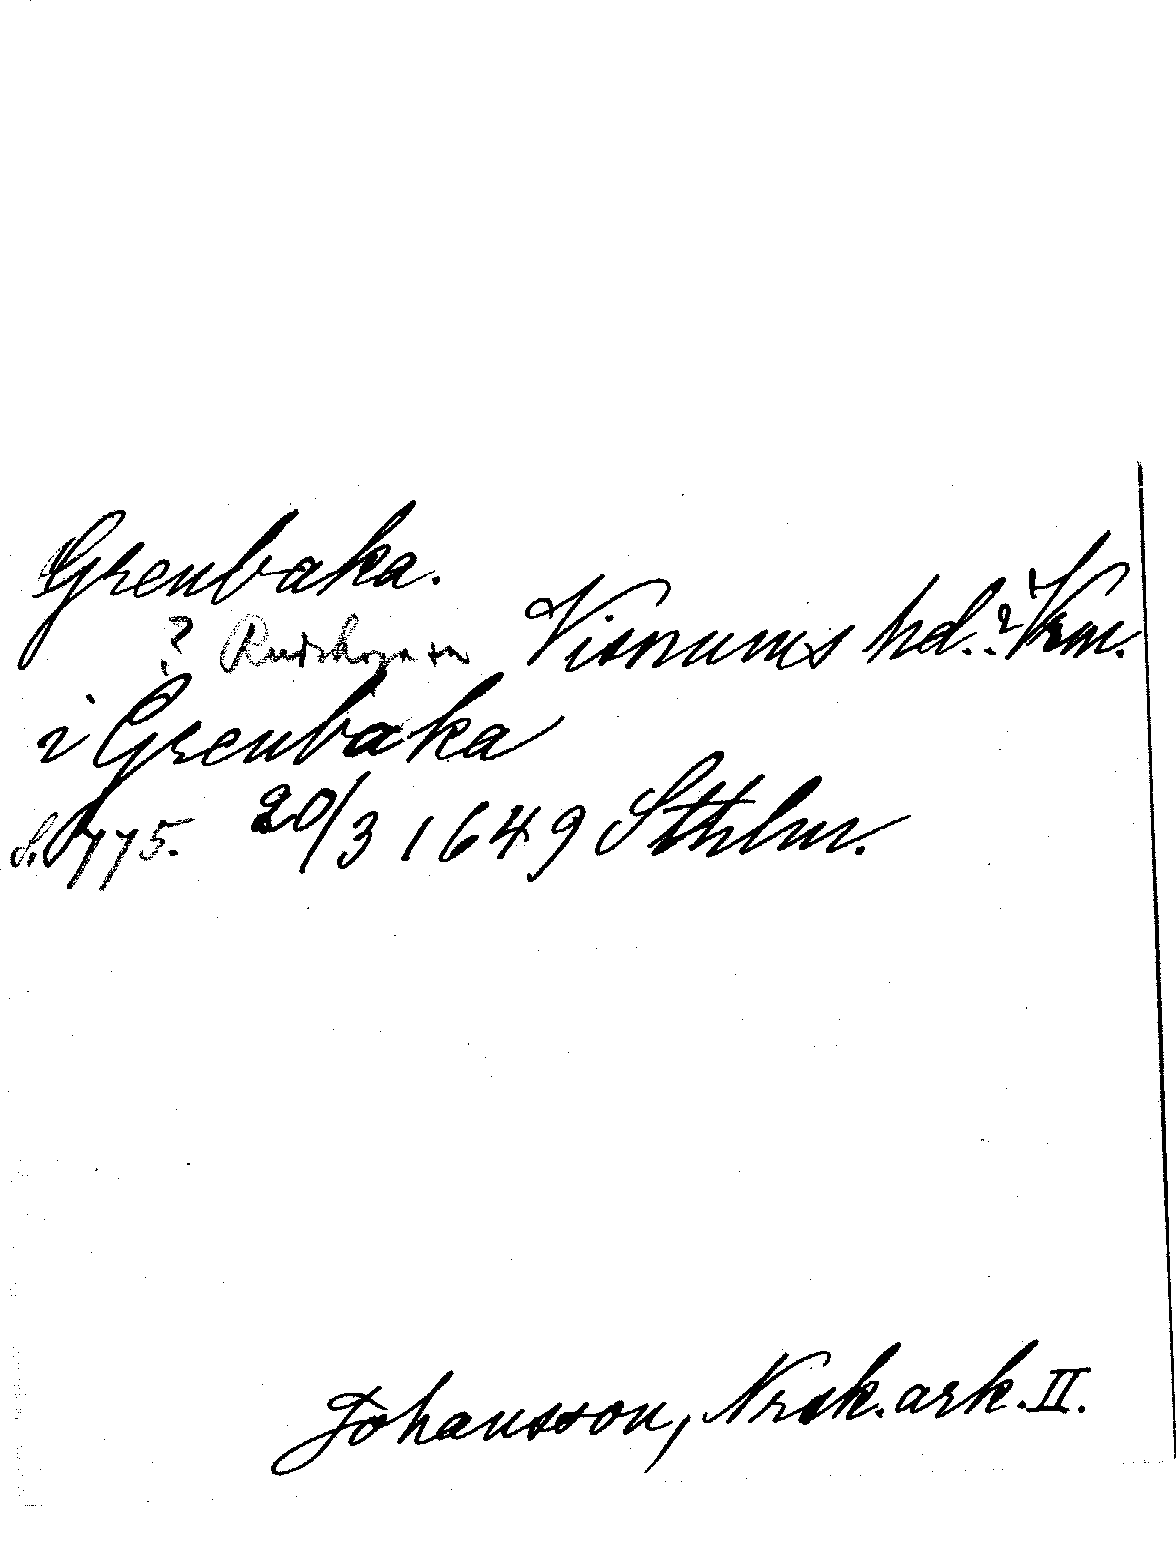 Grenbaka.
? Rudskoga sn Visnums hd.? Vrm.
i Grenbaka
S. 775. 20/3 1649 Sthlm.
Johansson, Nrsk. ark. II.